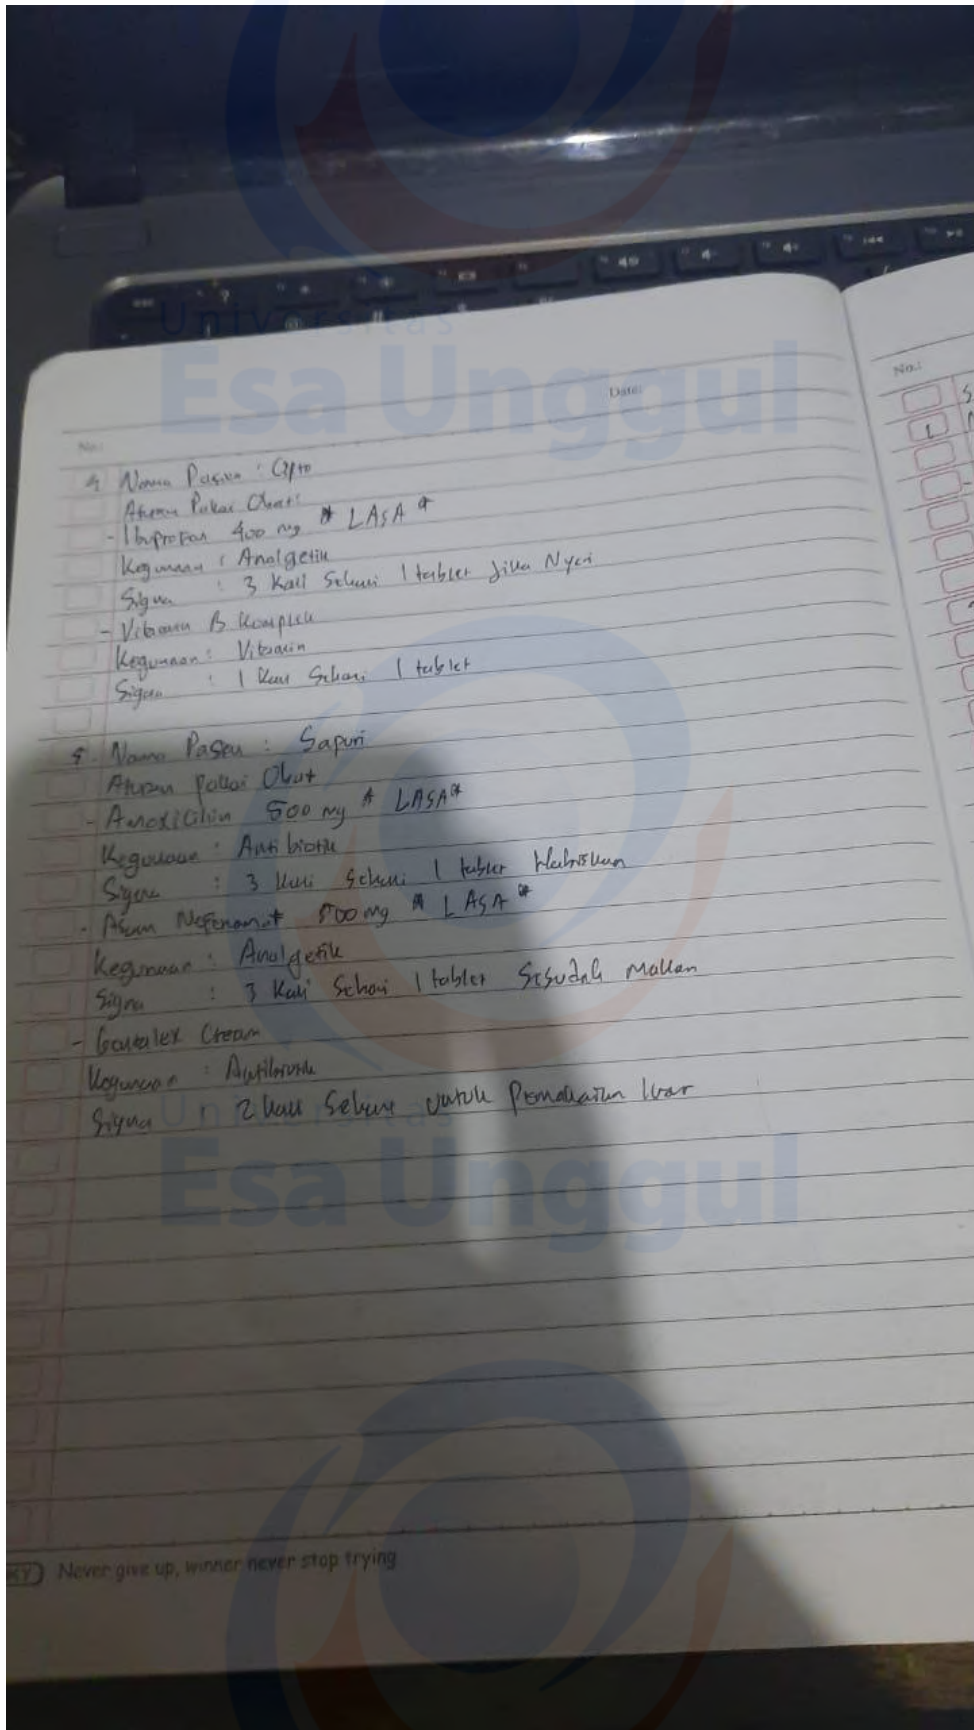 Universitas
Esa Unggul
No.:
Date:
4 Nama Pasien : Cipto
Aturan Pakai Obat:
- Ibuprofan 400 mg * LASA *
Kegunaan : Analgetik
Signa : 3 Kali Sehari 1 tablet Jika Nyeri
- Vitamin B Komplek
Kegunaan : Vitamin
Signa : 1 Kali Sehari 1 tablet
5. Nama Pasien : Sapuri
Aturan Pakai Obat
- Amoxicilin 500 mg * LASA *
Kegunaan : Antibiotik
Signa : 3 Kali Sehari 1 tablet Habiskan
- Asam Mefenamat 500 mg * LASA *
Kegunaan : Analgetik
Signa : 3 Kali Sehari 1 tablet Sesudah Makan
- Cream
Kegunaan : Antibiotik
Signa 2 kali Sehari untuk Pemakaian luar
Universitas
Esa Unggul
Never give up, winner never stop trying
No.:
1